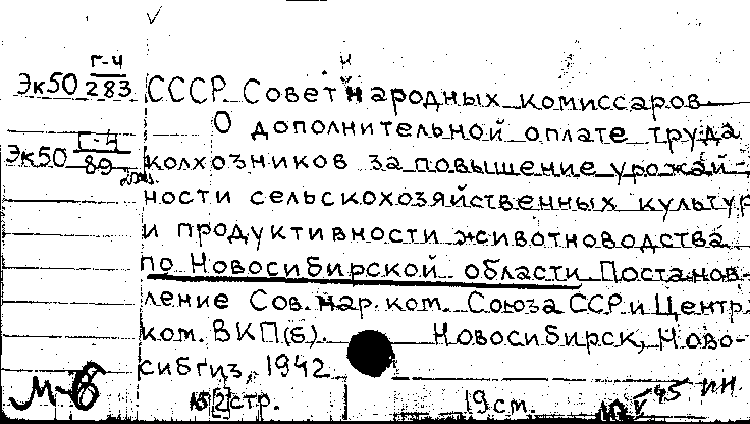 Г-4
Эк50 283 СССР. Совет народных комиссаров
О дополнительной оплате труда
Г-4
Эк50 89 колхозников за повышение урожай-
ности сельскохозяйственных культур
и продуктивности животноводства
по Новосибирской области Постанов-
ление Сов. нар. ком. Союза ССР и Центр.
ком. ВКП(б). Новосибирск, Ново-
сибгиз, 1942
М-6 [2] стр. 19 см. 45 ПН